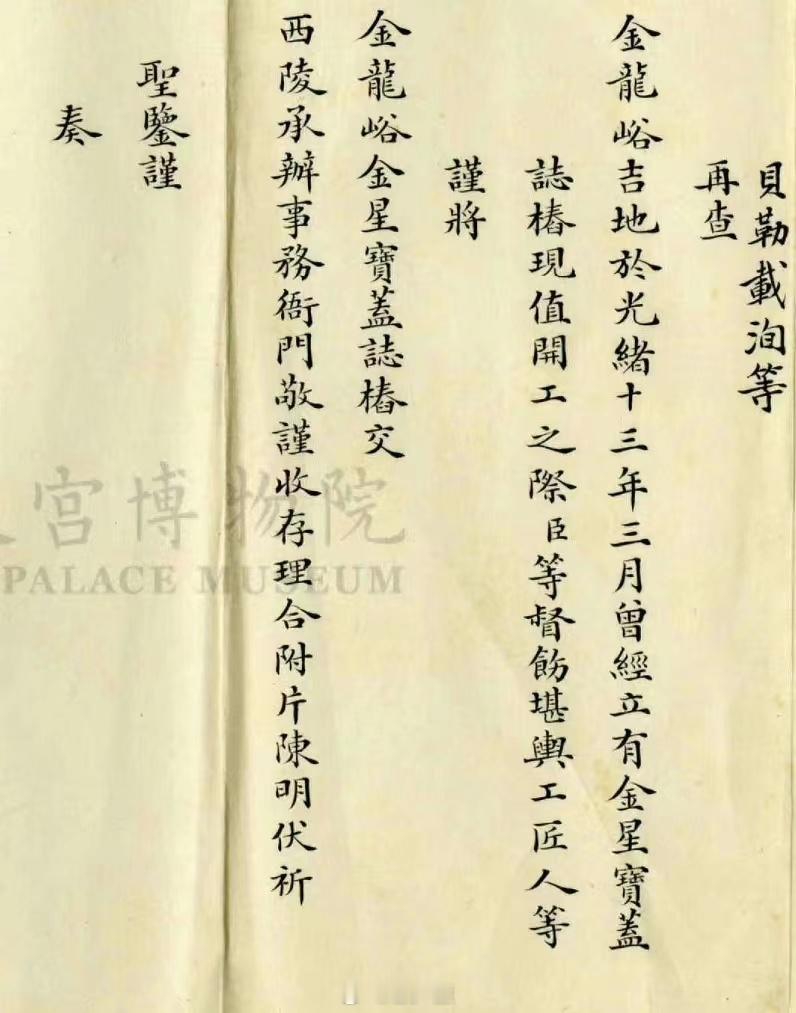 貝勒載洵等
再查
金龍峪吉地於光緒十三年三月曾經立有金星寶蓋
誌樁現值開工之際臣等督飭堪輿工匠人等
謹將
金龍峪金星寶蓋誌樁交
西陵承辦事務衙門敬謹收存理合附片陳明伏祈
聖鑒謹
奏
宮博物院
PALACE MUSEUM